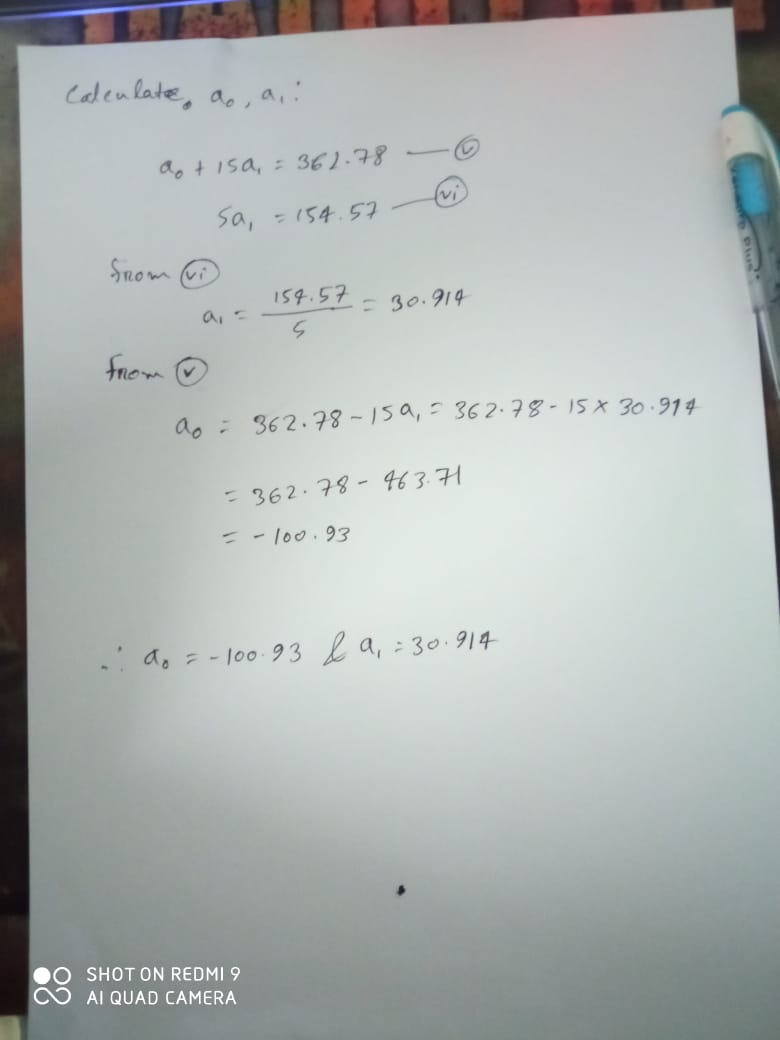 Calculate, a₀, a₁:
a₀ + 15a₁ = 362.78 — (v)
5a₁ = 154.57 — (vi)
from (vi)
a₁ = 154.57/5 = 30.914
from (v)
a₀ = 362.78 - 15a₁ = 362.78 - 15 × 30.914
= 362.78 - 463.71
= -100.93
∴ a₀ = -100.93 & a₁ = 30.914
SHOT ON REDMI 9
AI QUAD CAMERA